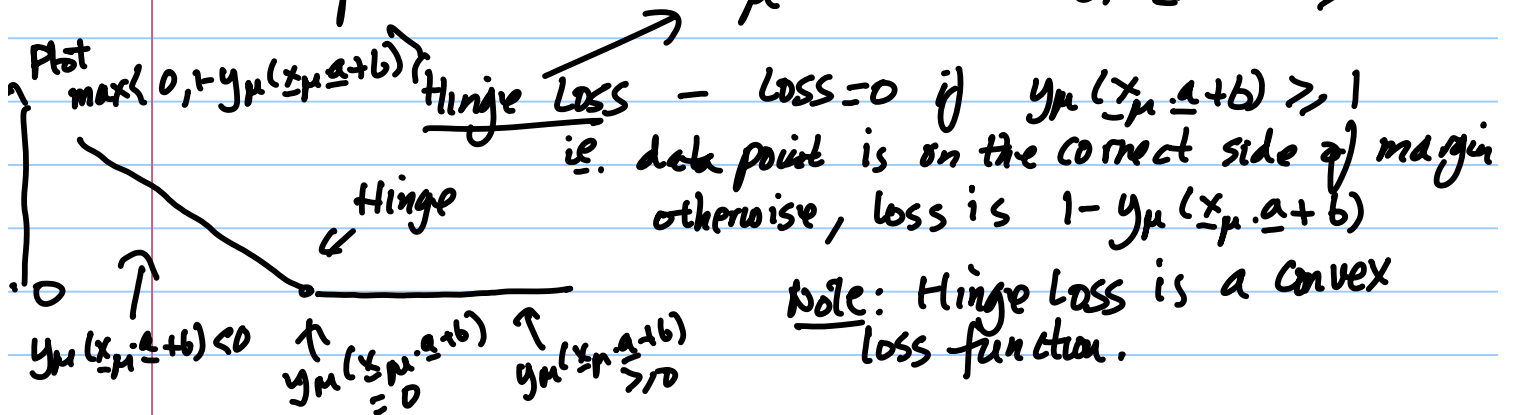 Plot
max{ 0, 1-yμ(xμ.a+b) }
Hinge Loss - Loss=0 if yμ(xμ.a+b) ≥ 1
ie. data point is on the correct side of margin
Hinge
otherwise, loss is 1- yμ(xμ.a+b)
0
Note: Hinge Loss is a convex
loss function.
yμ(xμ.a+b) <0
yμ(xμ.a+b) = 0
yμ(xμ.a+b) ≥ 0